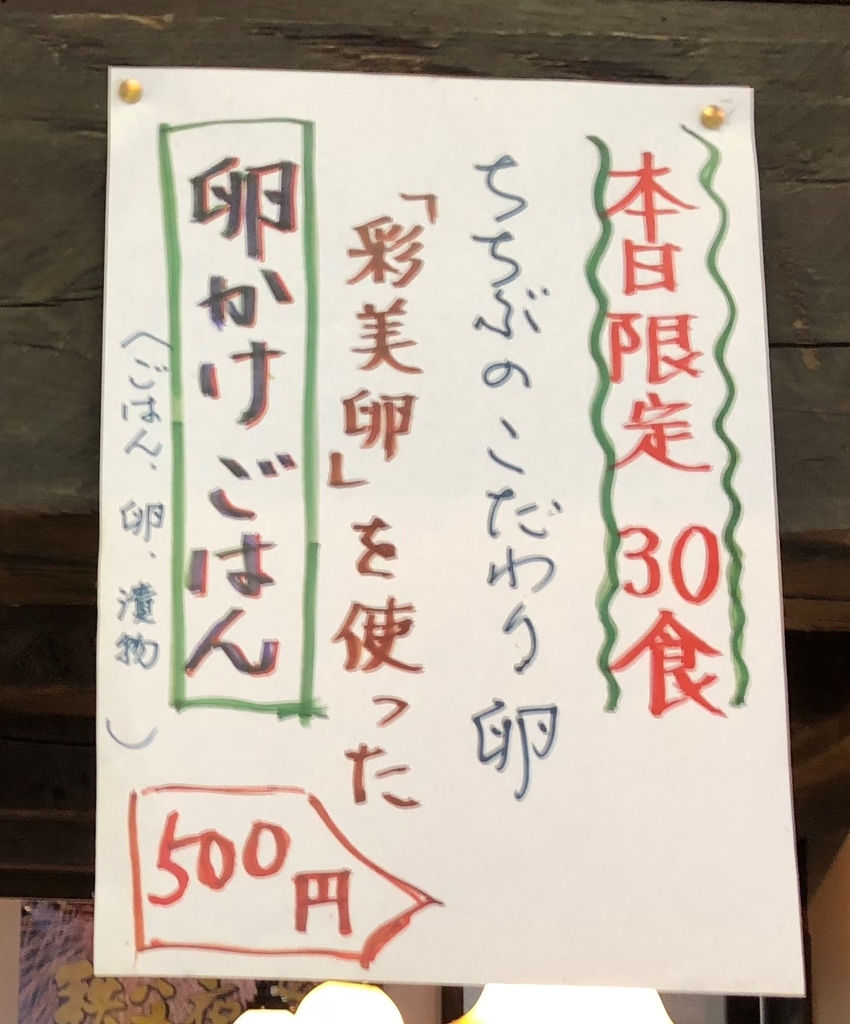 本日限定 30食
ちちぶのこだわり卵
「彩美卵」を使った
卵かけごはん
(ごはん、卵、漬物)
500円